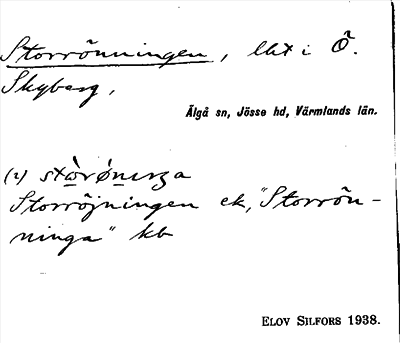 Storrönningen, lht i Ö.
Skyberg,
Älgå sn, Jösse hd, Värmlands län.
(2)
Storröjningen ek, "Storrön-
ninga" kb
ELOV SILFORS 1938.